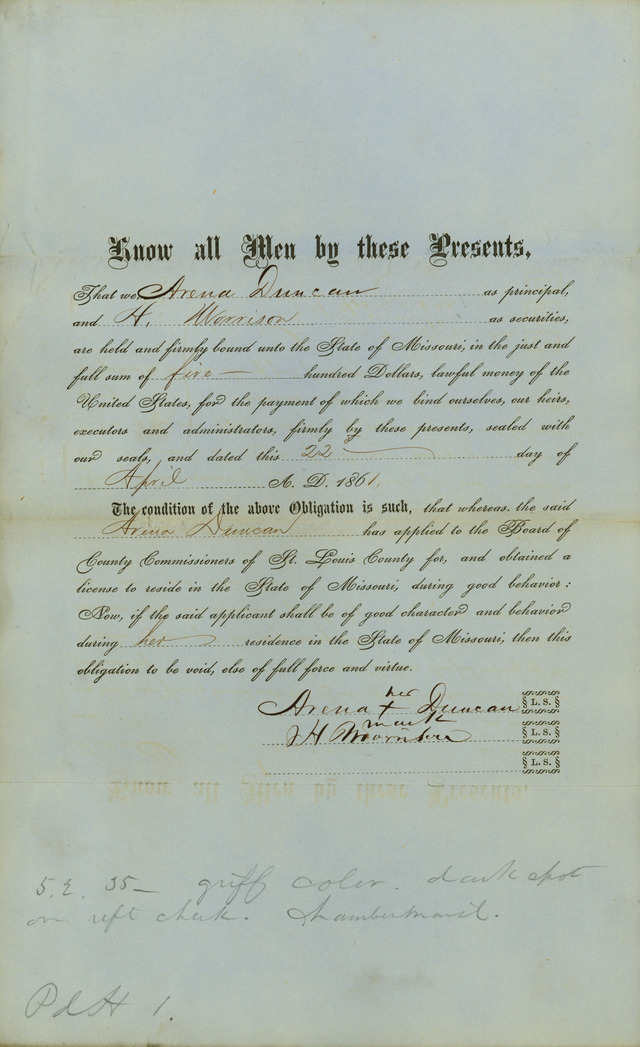 Know all Men by these Presents,
That we, Arena Duncan as principal,
and H. Morrison as securities,
are held and firmly bound unto the State of Missouri, in the just and
full sum of five hundred Dollars, lawful money of the
United States, for the payment of which we bind ourselves, our heirs,
executors and administrators, firmly by these presents, sealed with
our seals, and dated this 22 day of
April A. D. 1861.
The condition of the above Obligation is such, that whereas, the said
Arena Duncan has applied to the Board of
County Commissioners of St. Louis County for, and obtained a
license to reside in the State of Missouri, during good behavior:
Now, if the said applicant shall be of good character and behavior
during her residence in the State of Missouri, then this
obligation to be void, else of full force and virtue.
her
Arena X Duncan L. S.
mark
H L. S.
L. S.
35 – griff color. dark spot
on left cheek. Chambermaid.
Pd H 1.